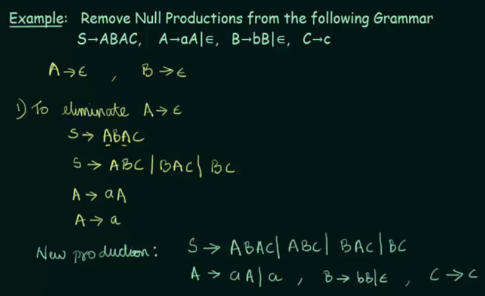 Example: Remove Null Productions from the following Grammar
S→ABAC, A→aA|ϵ, B→bB|ϵ, C→c
A→ϵ , B→ϵ
1) To eliminate A→ϵ
S→ ABAC
S→ ABC | BAC | BC
A→ aA
A→ a
New production: S→ ABAC | ABC | BAC | BC
A→ aA | a , B→ bB|ϵ , C→c